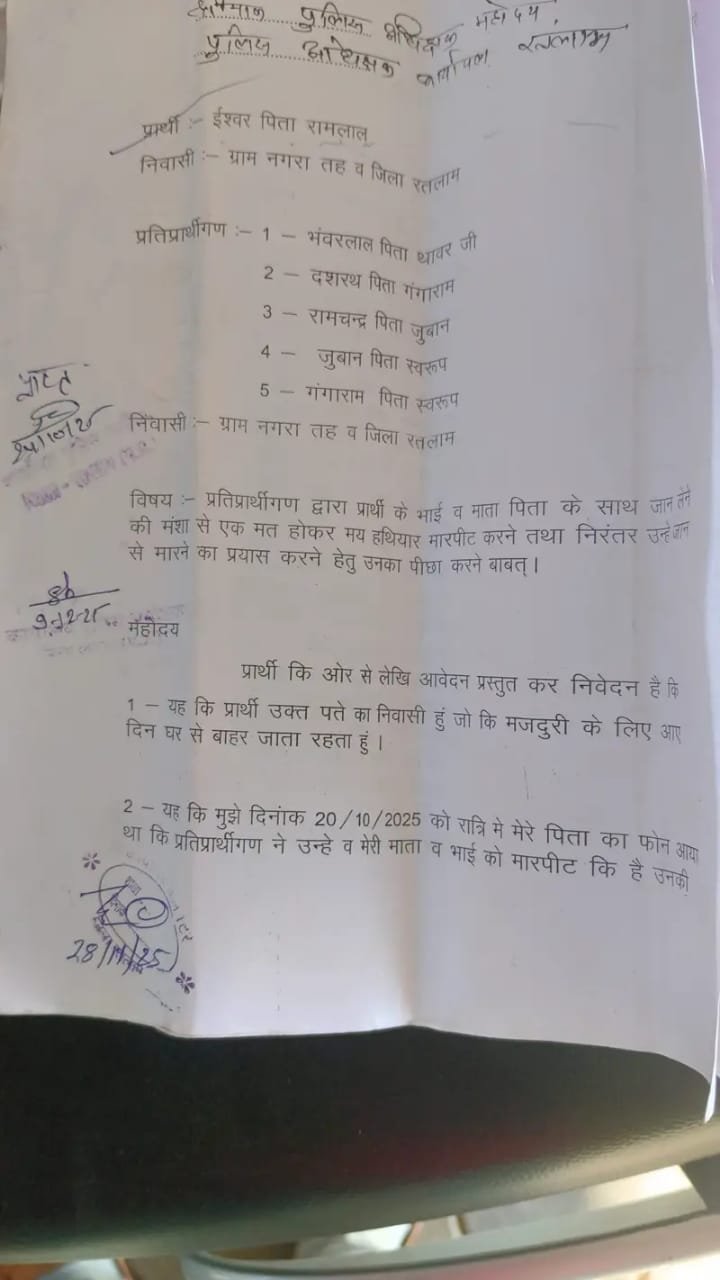 श्रीमान पुलिस अधिक्षक महोदय,
पुलिस अधिक्षक कार्यालय रतलाम
प्रार्थी :– ईश्वर पिता रामलाल
निवासी :– ग्राम नगरा तह व जिला रतलाम
प्रतिप्रार्थीगण :– 1 – भंवरलाल पिता थावर जी
2 – दशरथ पिता गंगाराम
3 – रामचन्द्र पिता जुबान
4 – जुबान पिता स्वरूप
5 – गंगाराम पिता स्वरूप
निवासी :– ग्राम नगरा तह व जिला रतलाम
प्राप्त
विषय :– प्रतिप्रार्थीगण द्वारा प्रार्थी के भाई व माता पिता के साथ जान लेने
की मंशा से एक मत होकर मय हथियार मारपीट करने तथा निरंतर उन्हे जान
से मारने का प्रयास करने हेतु उनका पीछा करने बाबत्।
9-12-25
महोदय
प्रार्थी कि ओर से लेखि आवेदन प्रस्तुत कर निवेदन है कि
1 – यह कि प्रार्थी उक्त पते का निवासी हुं जो कि मजदुरी के लिए आए
दिन घर से बाहर जाता रहता हुं।
2 – यह कि मुझे दिनांक 20/10/2025 को रात्रि मे मेरे पिता का फोन आया
था कि प्रतिप्रार्थीगण ने उन्हे व मेरी माता व भाई को मारपीट कि है उनकी
28/11/25